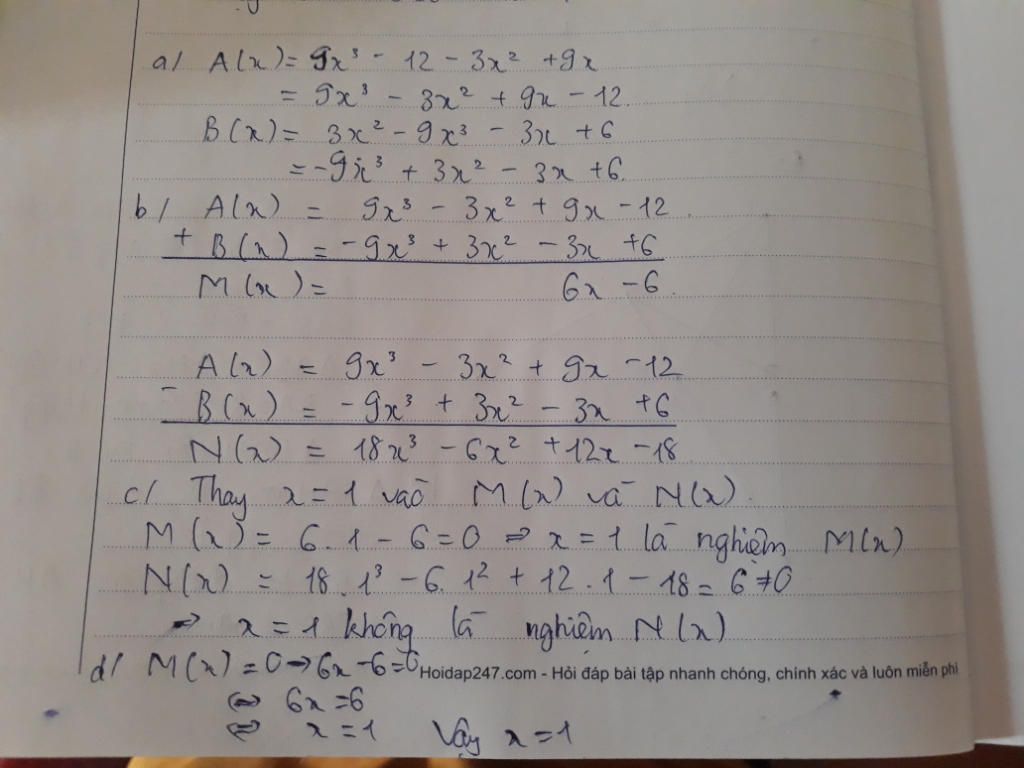 a/ A(x) = 9x³ - 12 - 3x² + 9x
= 9x³ - 3x² + 9x - 12.
B(x) = 3x² - 9x³ - 3x + 6
= -9x³ + 3x² - 3x + 6.
b/ A(x) = 9x³ - 3x² + 9x - 12
+ B(x) = -9x³ + 3x² - 3x + 6
M(x) = 6x - 6.
A(x) = 9x³ - 3x² + 9x - 12
- B(x) = -9x³ + 3x² - 3x + 6
N(x) = 18x³ - 6x² + 12x - 18
c/ Thay x = 1 vào M(x) và N(x).
M(x) = 6.1 - 6 = 0 ⇒ x = 1 là nghiệm M(x)
N(x) = 18.1³ - 6.1² + 12.1 - 18 = 6 ≠ 0
⇒ x = 1 không là nghiệm N(x)
d/ M(x) = 0 → 6x - 6 = 0
Hoidap247.com - Hỏi đáp bài tập nhanh chóng, chính xác và luôn miễn phí
⇔ 6x = 6
⇔ x = 1 Vậy x = 1